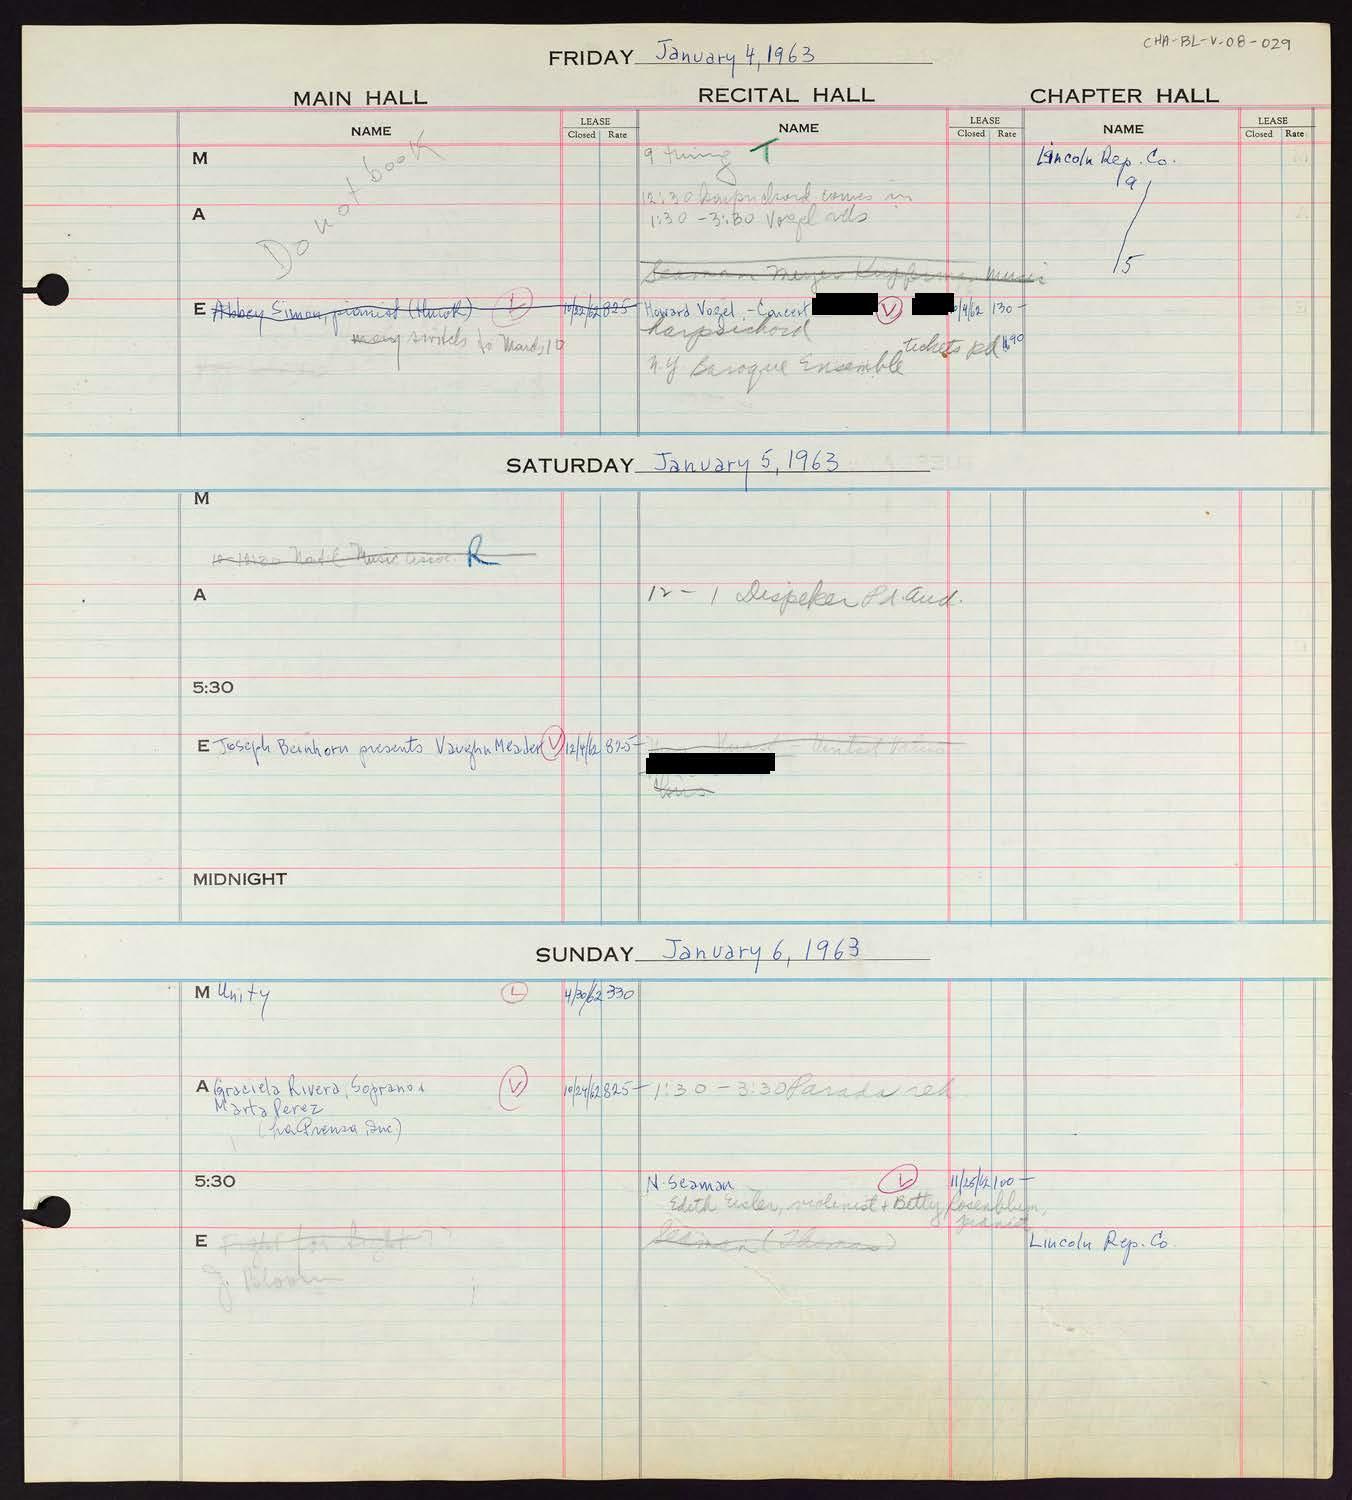 CHA-BL-V-08-029
FRIDAY January 4, 1963
MAIN HALL RECITAL HALL CHAPTER HALL
NAME LEASE Closed Rate NAME LEASE Closed Rate NAME LEASE Closed Rate
M 9 tuning T Lincoln Rep. Co.
Do not book 9
12:30 harpsichord comes in
A 1:30 - 3:30 Vogel
5
Seaman Meyer music
E Abbey Simon, pianist (Hurok) L 10/22/62 825- Howard Vogel - Concert V /4/62 130-
harpsichord
switch to March 10 tickets pd 11.90
N.Y Baroque Ensemble
SATURDAY January 5, 1963
M
Nat'l Music Assoc. R
A 12 - 1 Dispeker Pd. Aud.
5:30
E Joseph Beinhorn presents Vaughn Meader V 12/4/62 825-
MIDNIGHT
SUNDAY January 6, 1963
M Unity L 4/30/62 330
A Graciela Rivera, Soprano + V 10/24/62 825- 1:30 - 3:30 Parada reh
Marta Perez
(La Prensa, Inc.)
5:30 N. Seaman L 11/28/62 100-
Edith Eisler, violinist + Betty Rosenblum,
pianist
E Fight for Sight ?? Seaman (Thomas) Lincoln Rep. Co.
J. Bloom